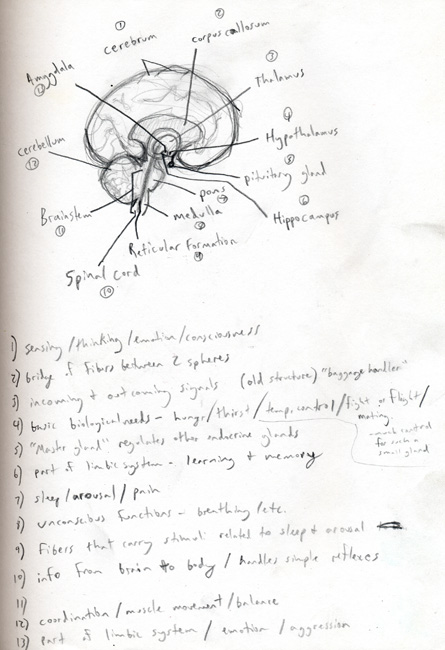 ① cerebrum
② corpus callosum
③ Thalamus
Amygdala
Hypothalamus
cerebellum
pituitary gland
pons
Hippocampus
⑥
Brainstem
⑪
medulla
⑧
Reticular Formation
⑨
Spinal Cord
⑩
1) sensing/thinking/emotion/consciousness
2) bridge of fibers between 2 spheres
3) incoming + outcoming signals (old structure) "baggage handler"
4) basic biological needs - hungr/thirst/temp. control/fight or flight/
mating.
- much control
for such a
small gland
5) "Master gland" regulates other endocrine glands
6) part of limbic system - learning & memory
7) sleep/arousal/pain
8) unconscious functions - breathing/etc.
9) fibers that carry stimuli related to sleep & arousal
10) info from brain to body / handles simple reflexes
11)
12) coordination/muscle movement/balance
13) part of limbic system / emotion / aggression